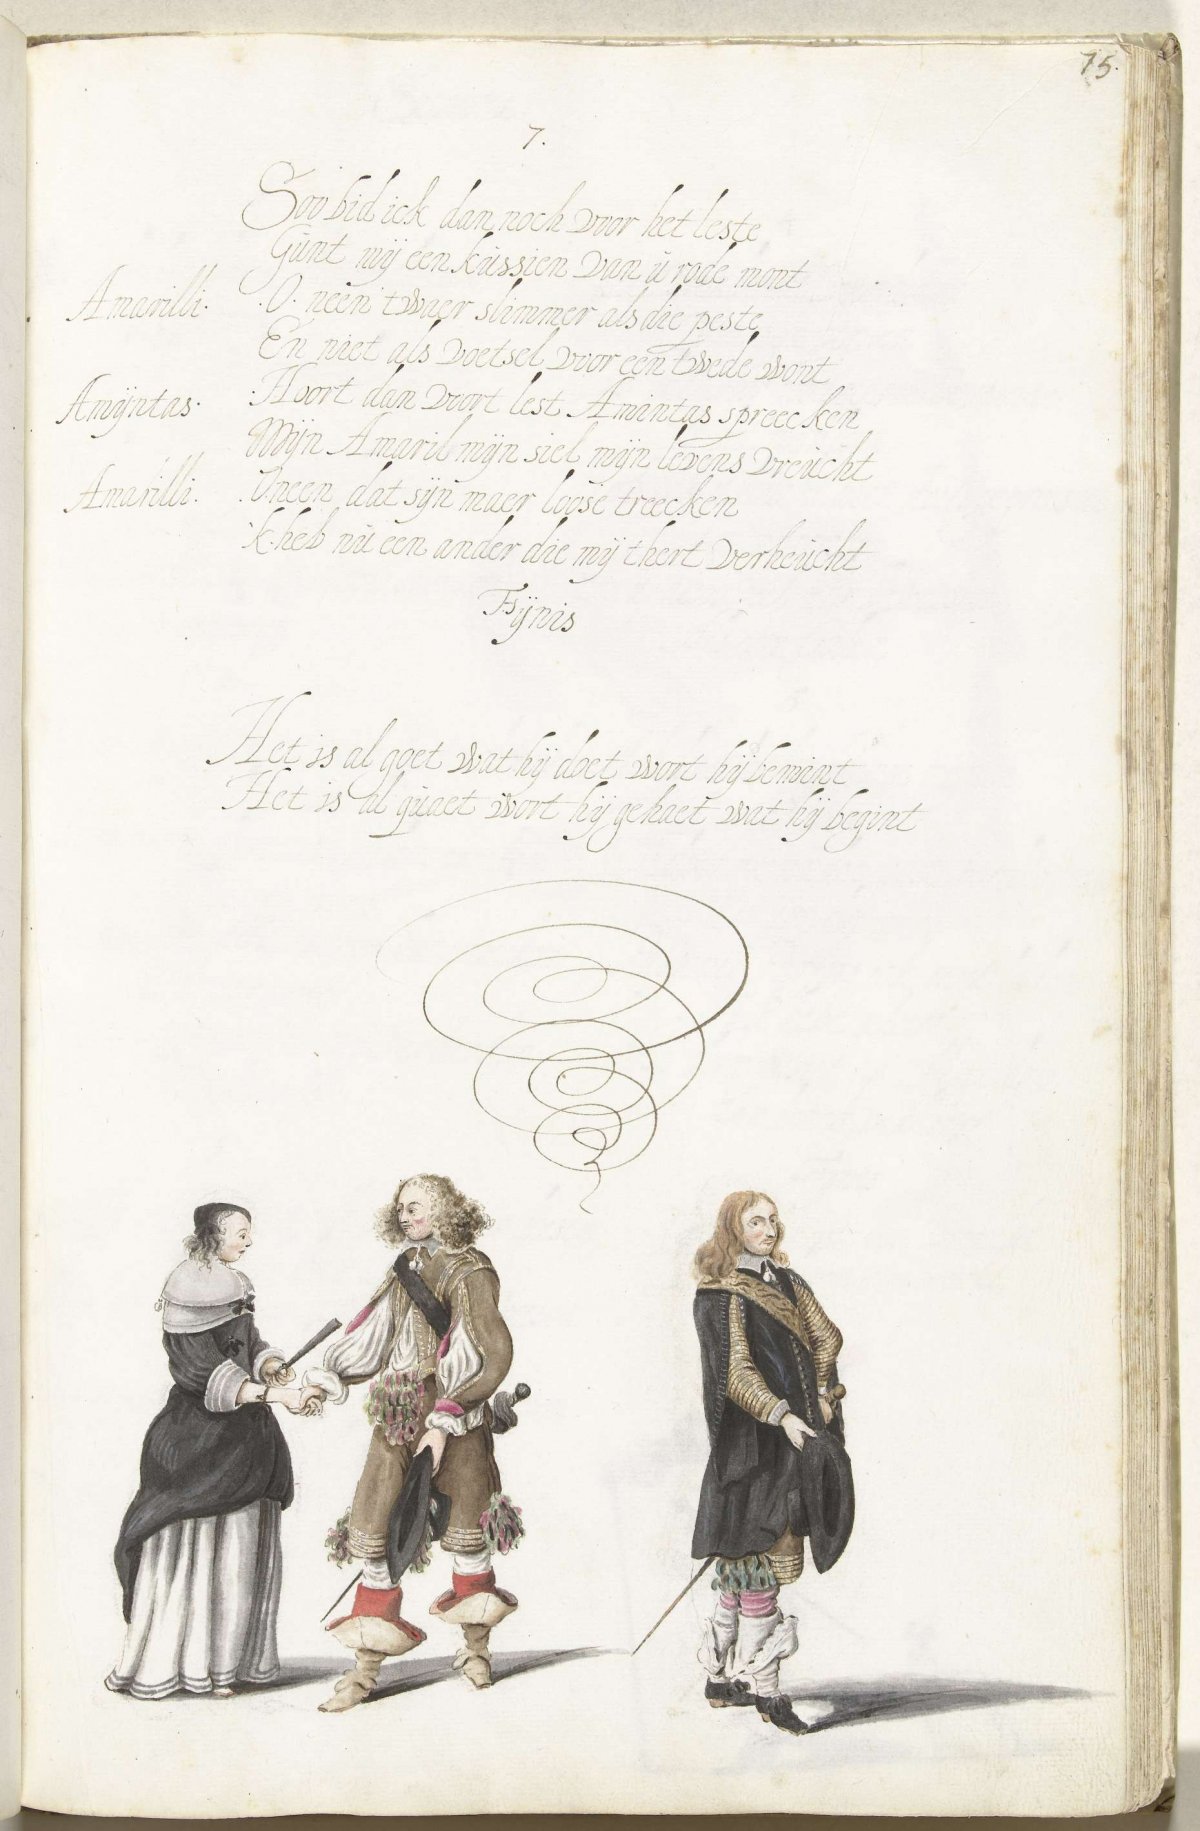 75.
7.
Soo bid ick dan noch voor het leste
Gunt mij een kussien van ü rode mont
Amarilli. O neen twaer slimmer als die peste
En niet als voetsel voor een twede wont
Amÿntas. Hoort dan voort lest Amintas spreecken
Mijn Amaril mijn siel mijn levens vreücht
Amarilli. O neen dat sijn maer loose treecken
k heb nü een ander die mij thert verheücht
Fÿnis
Het is al goet wat hij doet wort hij bemint
Het is al quaet wort hij gehaet wat hij begint